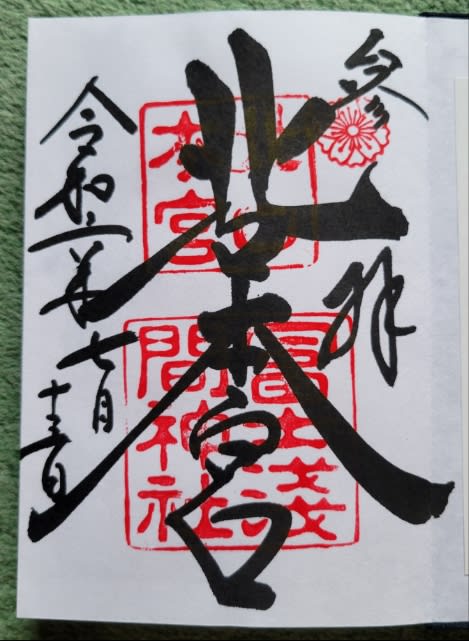 参拝
北口本宮
北口
本宮
冨士淺
間神社
令和二年七月
十三日